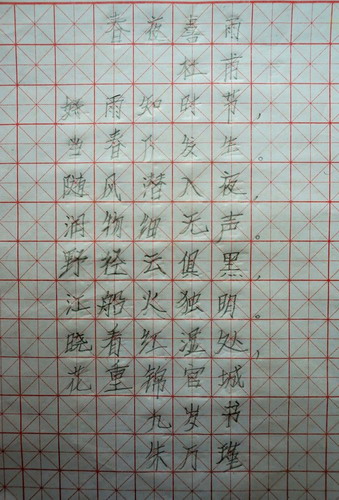 春夜喜雨
杜甫
好雨知时节，
当春乃发生。
随风潜入夜，
润物细无声。
野径云俱黑，
江船火独明。
晓看红湿处，
花重锦官城
九岁书
朱万瑾